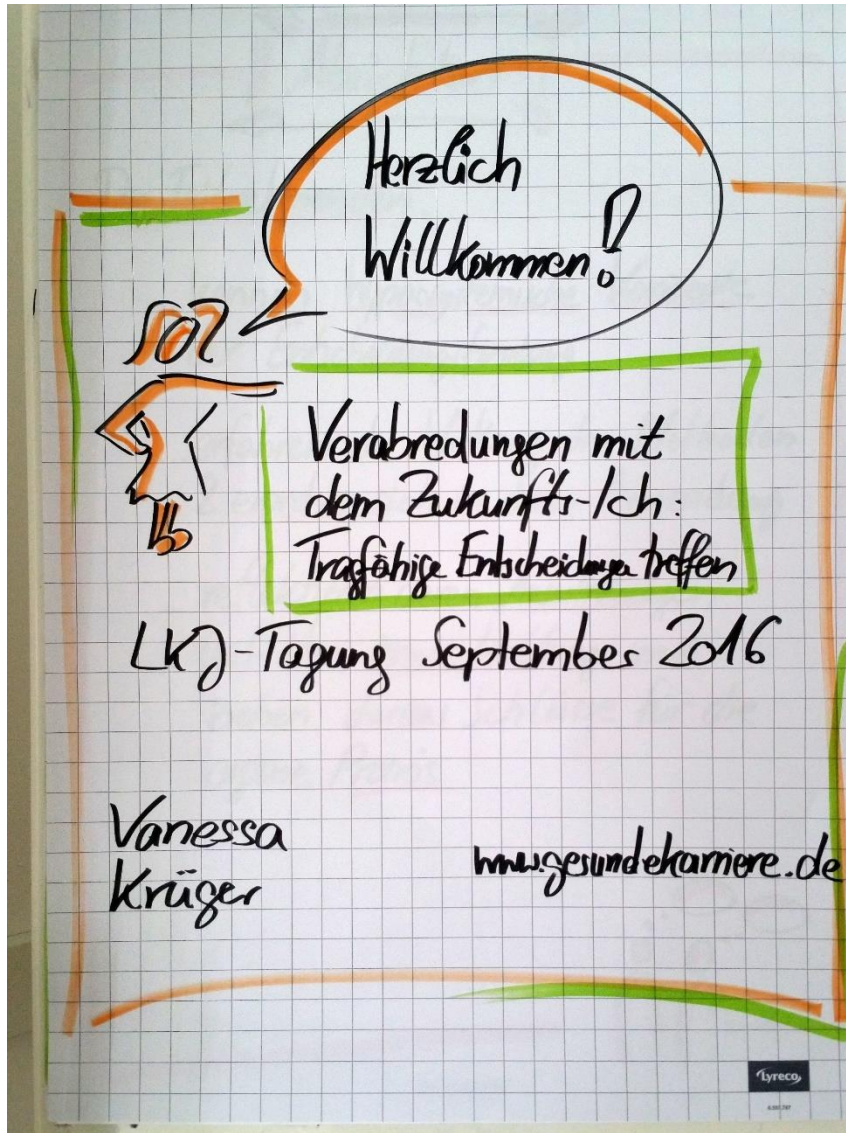 Herzlich
Willkommen!
Verabredungen mit
dem Zukunfts-Ich:
Tragfähige Entscheidungen treffen
LKJ-Tagung September 2016
Vanessa
Krüger
www.gesundekarriere.de
Lyreco